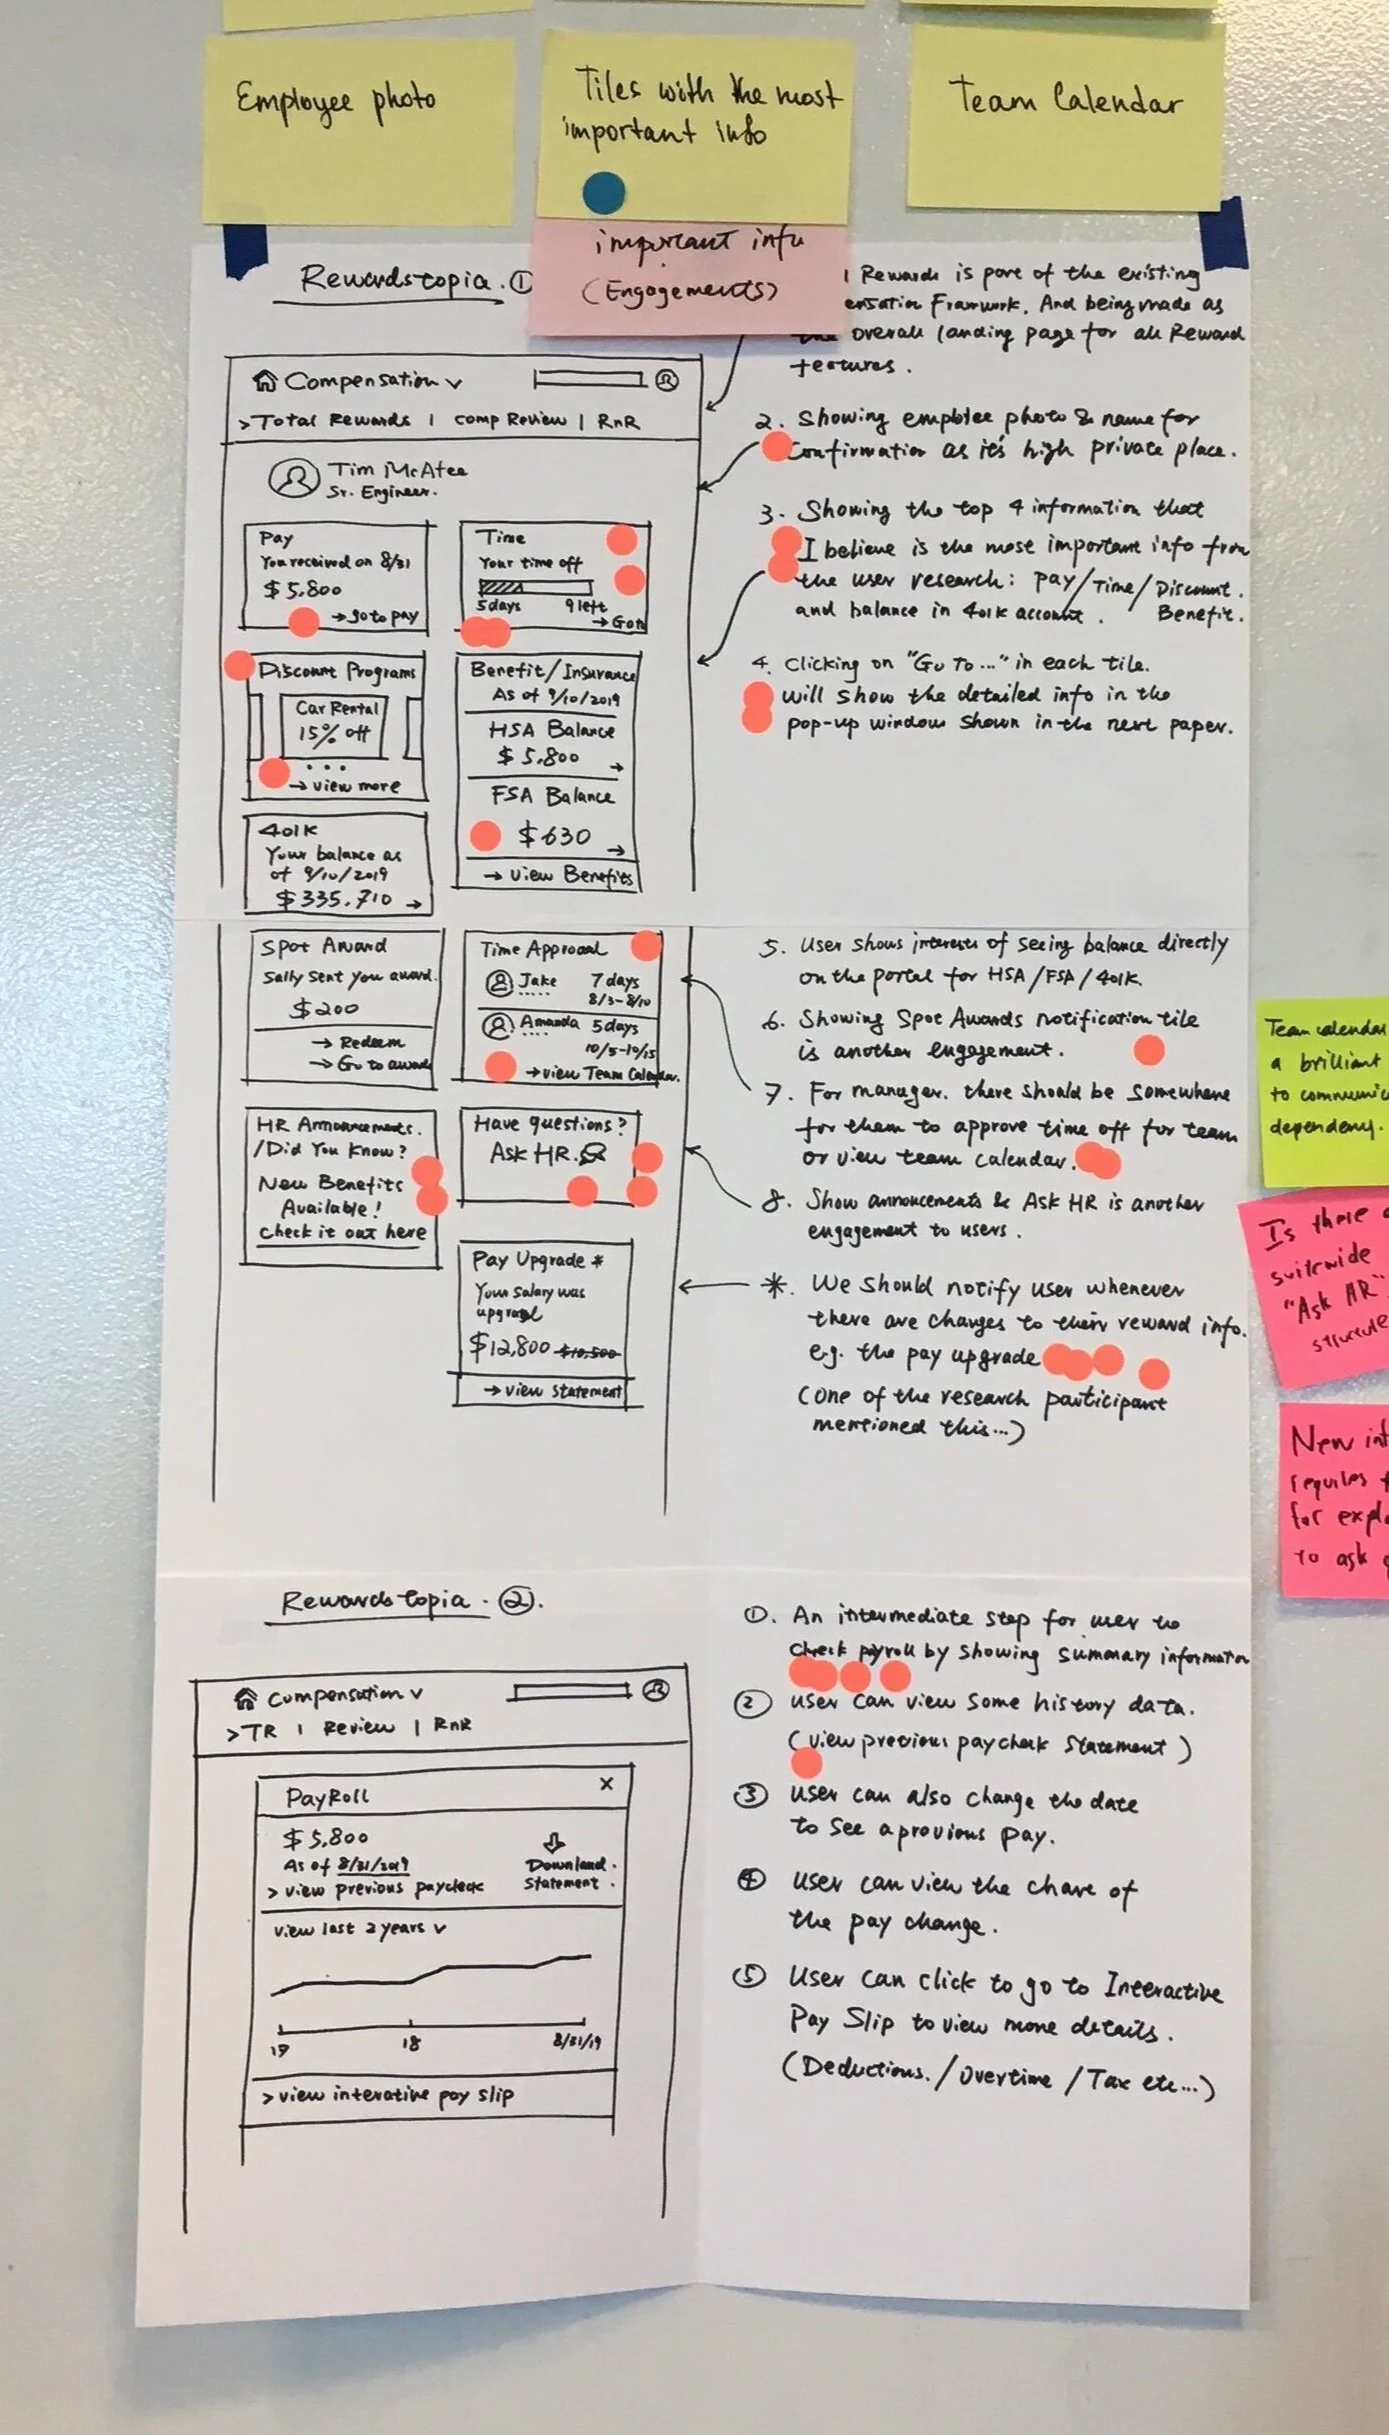 Employee photo
Tiles with the most
important info
Team Calendar
important info
(Engagements)
Rewardstopia. ①
Rewards is part of the existing
And being made as
the overall landing page for all Reward
Compensation ∨
>Total Rewards | Comp Review | RnR
Tim McAfee
Sr. Engineer.
Pay
You received on 8/31
$5,800
→ go to pay
Time
Your time off
5days 9 left
→ Go to
Discount Programs
Car Rental
15% off
...
→ view more
Benefit/Insurance
As of 9/10/2019
HSA Balance
$5,800 →
FSA Balance
$630 →
→ View Benefits
401K
Your balance as
of 9/10/2019
$335.710 →
2. Showing employee photo & name for
Confirmation as it's high private place.
3. Showing the top 4 information that
I believe is the most important info from
the user research: pay/Time/Discount.
and balance in 401k account. Benefit.
4. Clicking on "Go To..." in each tile.
will show the detailed info in the
pop-up window shown in the next paper.
Spot Award
Sally sent you award.
$200
→ Redeem
→ Go to award
Time Approval
Jake 7days
8/3-8/10
Amanda 5days
10/5-10/15
→ view Team Calendar.
HR Announcements.
/Did You Know?
New Benefits
Available!
Check it out here
Have questions?
Ask HR.
Pay Upgrade *
Your Salary was
$12,800 $10,500
→ view statement
5. User shows interests of seeing balance directly
on the portal for HSA/FSA/401K.
6. Showing Spot Awards notification tile
is another engagement.
7. For manager. there should be somewhere
for them to approve time off for team
or view team calendar.
8. Show announcements & Ask HR is another
engagement to users.
*. We should notify user whenever
there are changes to their reward info.
e.g. the pay upgrade
(one of the research participant
mentioned this...)
Team calendar
a brilliant
to
dependency.
Is there
suitewide
"Ask HR"
structure
New
requires
for
to ask
Rewardstopia. ②.
Compensation ∨
>TR | Review | RnR
PayRoll ×
$5,800
As of 8/31/2019
> view previous paycheck
Download.
Statement.
view last 2 years ∨
17 18 8/31/19
>view interative pay slip
①. An intermediate step for user to
check payroll by showing summary information
② user can view some history data.
(view previous paycheck statement)
③ user can also change the date
to see a provious pay.
④ user can view the chare of
the pay change.
⑤ user can click to go to Interactive
Pay Slip to view more details.
(Deductions./Overtime/Tax etc...)